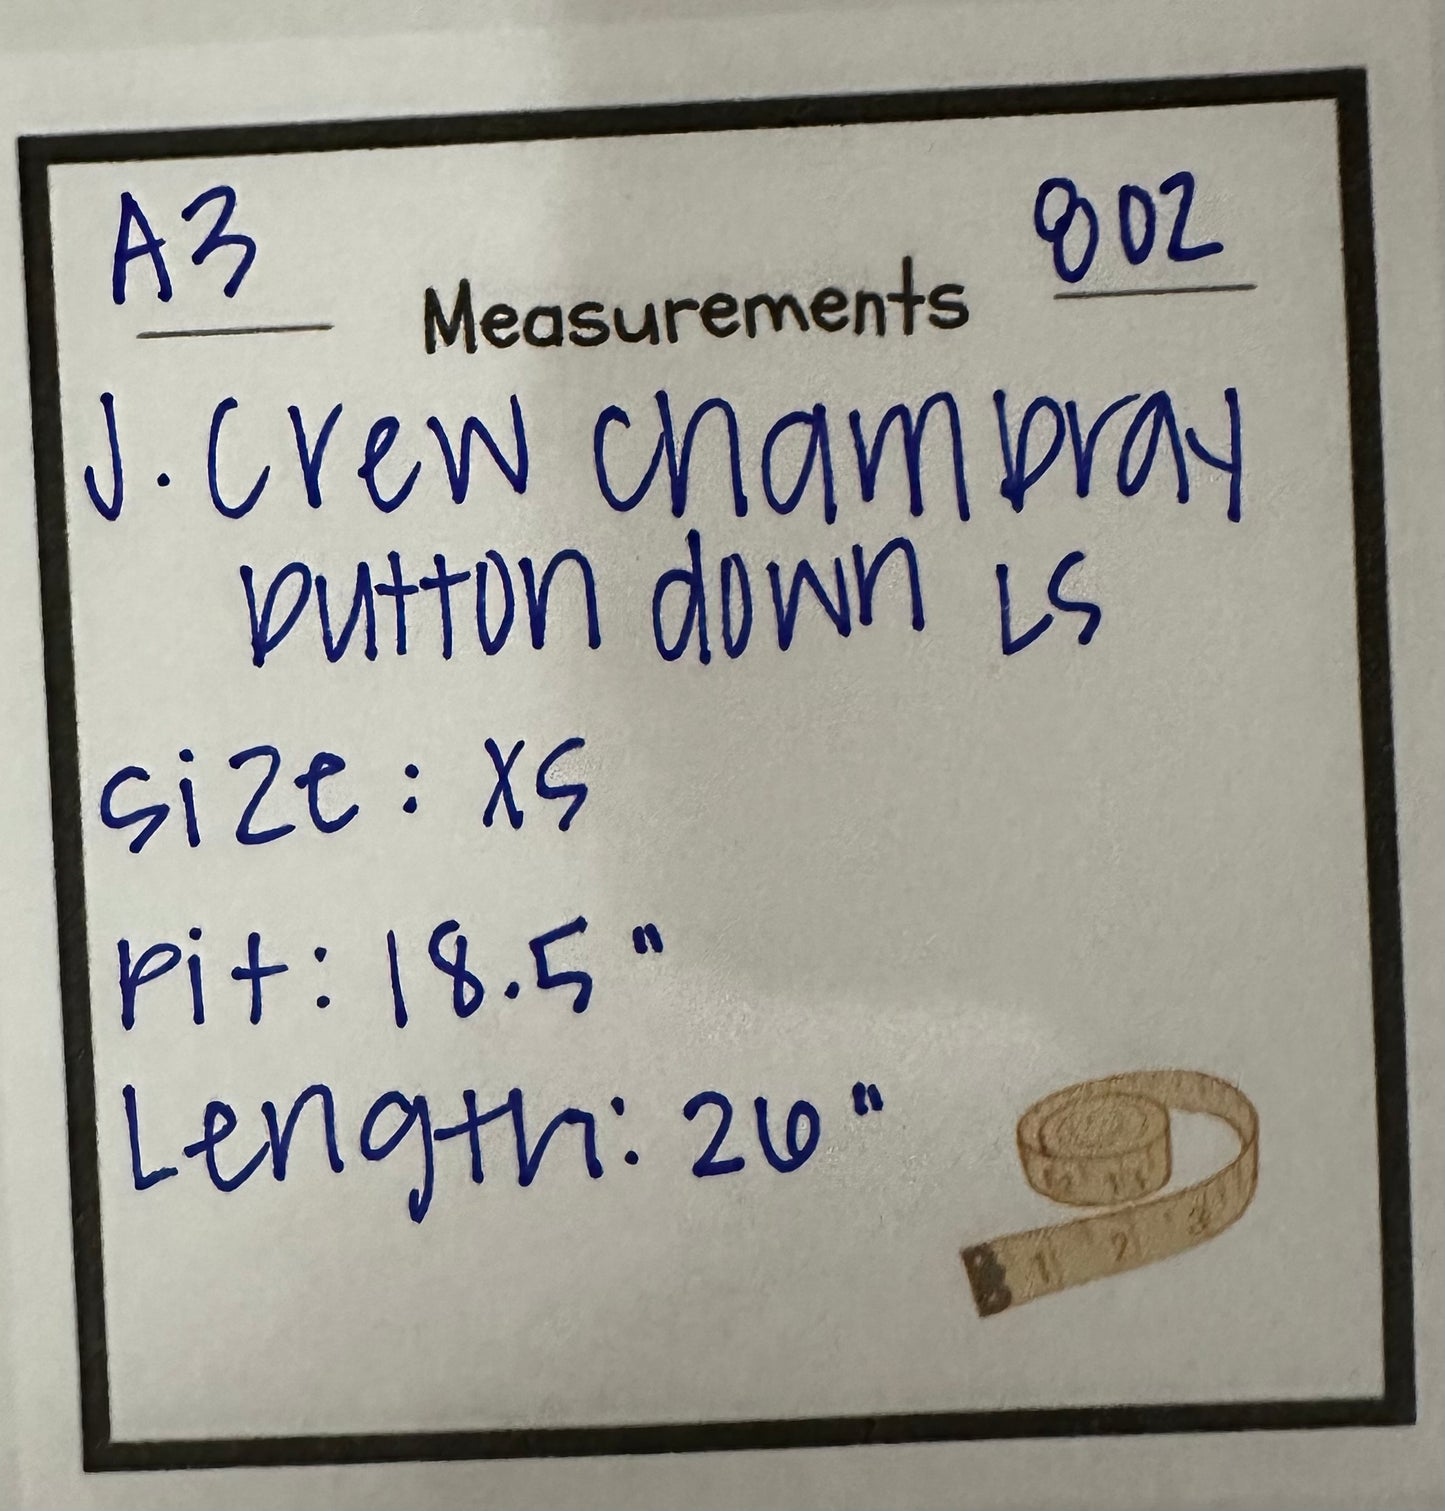 A3 802
Measurements
J. Crew chambray
button down LS
size: XS
pit: 18.5"
Length: 26"
1 2 3